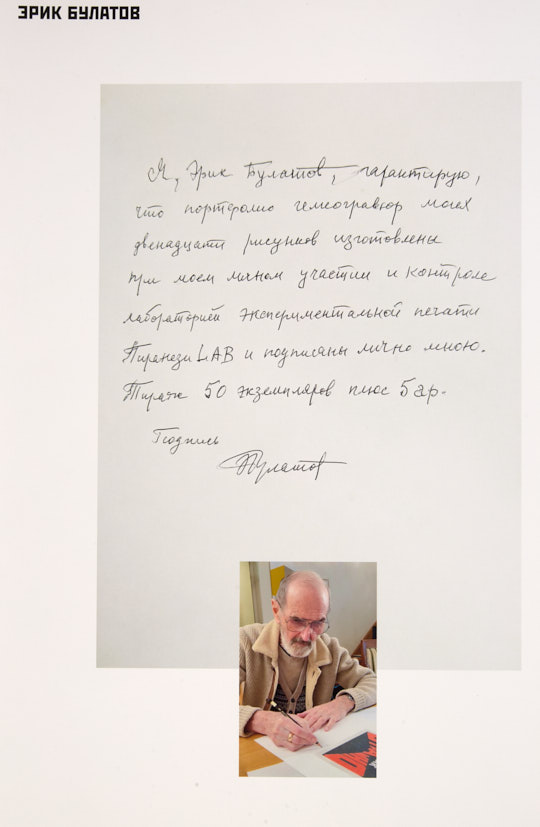 ЭРИК БУЛАТОВ
Я, Эрик Булатов, гарантирую,
что портфолио гелиогравюр моих
двенадцати рисунков изготовлены
при моем личном участии и контроле
лабораторией экспериментальной печати
Пиранези LAB и подписаны лично мною.
Тираж 50 экземпляров плюс 5 ар.
Подпись
Булатов